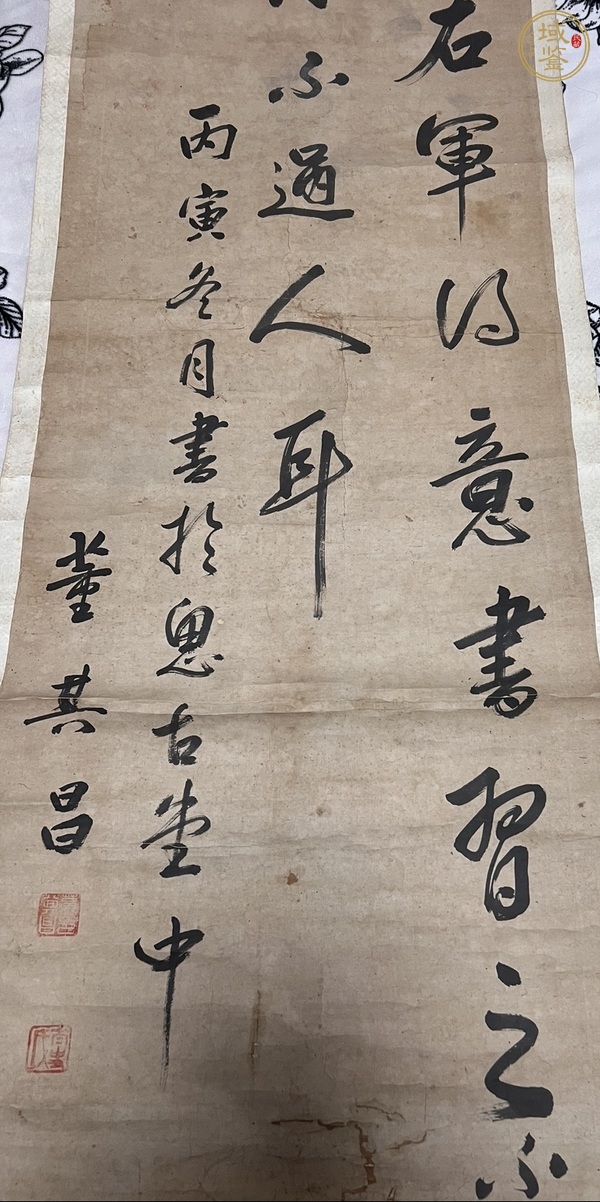 右軍得意書習之不
不過人耳
丙寅冬月書於思古堂中
董其昌
域鉴